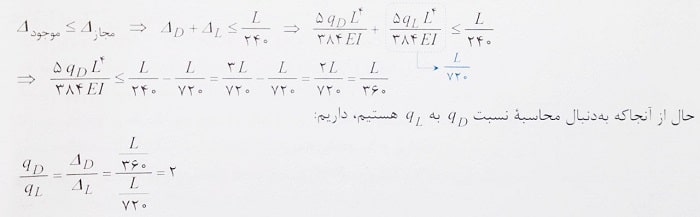 Δموجود ≤ Δمجاز ⇒ Δ_D + Δ_L ≤ L/۲۴۰ ⇒ ۵q_D L^۴/۳۸۴EI + ۵q_L L^۴/۳۸۴EI ≤ L/۲۴۰
L/۷۲۰
⇒ ۵q_D L^۴/۳۸۴EI ≤ L/۲۴۰ − L/۷۲۰ = ۳L/۷۲۰ − L/۷۲۰ = ۲L/۷۲۰ = L/۳۶۰
حال از آنجاکه به‌دنبال محاسبهٔ نسبت q_D به q_L هستیم، داریم:
q_D/q_L = Δ_D/Δ_L = (L/۳۶۰)/(L/۷۲۰) = ۲